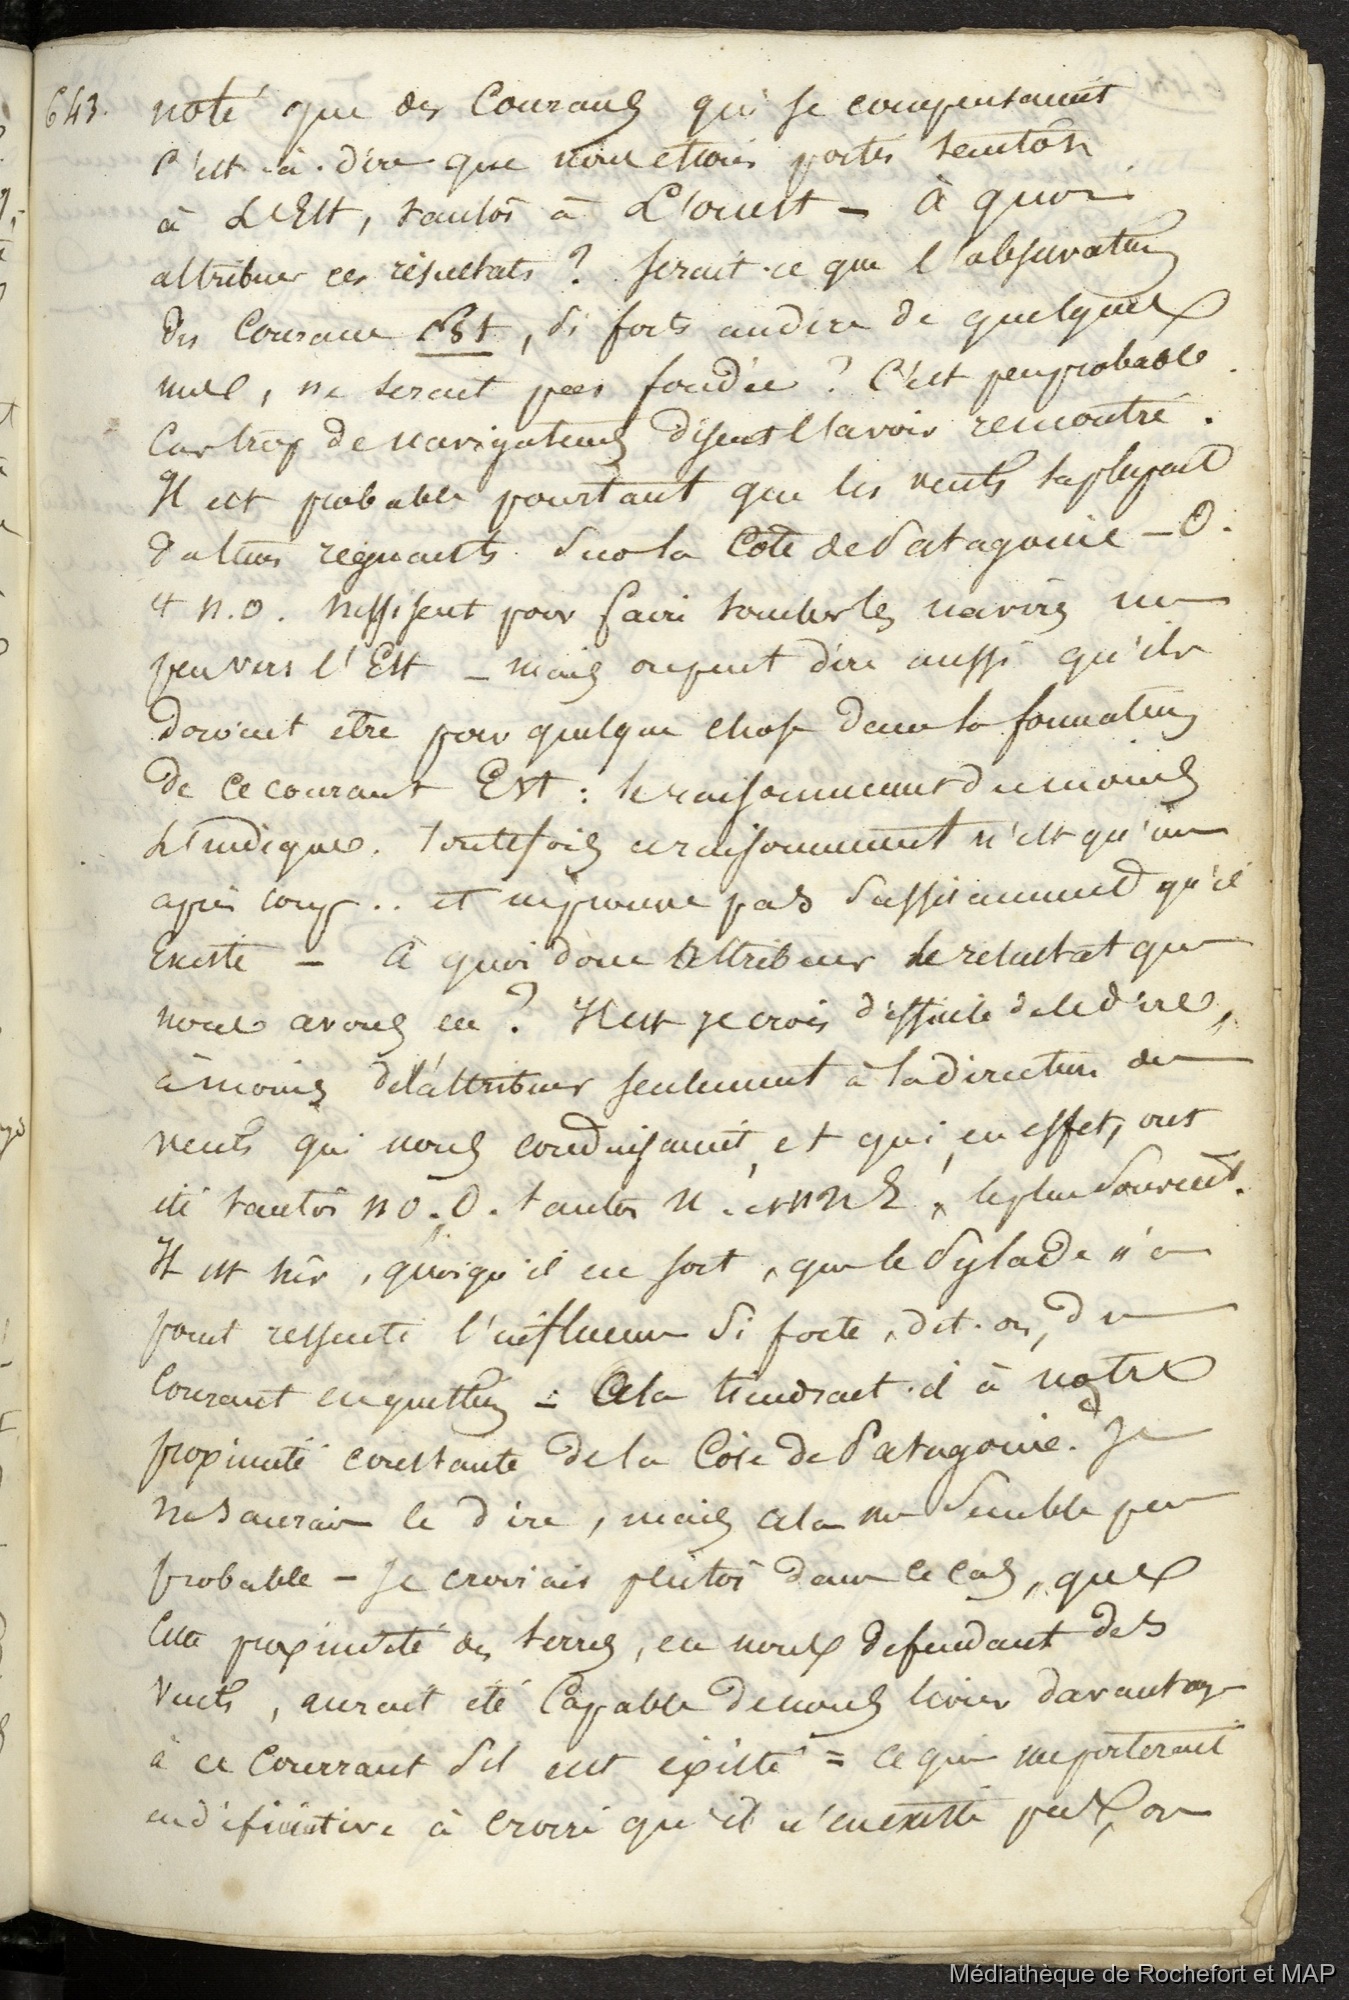 643.
noté que des Courans qui se compensaient
C'est-à-dire que nous étions portés tantôt
à L'Est, tantôt à L'ouest - à quoi
attribuer ces résultats ? Serait-ce que l'observation
Des Courans Est, Si forts au dire de quelques
uns, ne serait pas fondée ? C'est peu probable.
Car trop de navigateurs disent l'avoir rencontré.
Il est probable pourtant que les vents la plupart
Du tems régnants Sur la Côte de Patagonie - O.
et N.O. suffisent pour faire tomber les navires un
peu vers l'Est - mais on peut dire aussi qu'ils
doivent être pour quelque chose dans la formation
De ce courant Est : le raisonnement du moins
L'indique. Toutefois ce raisonnement n'est qu'un
après coup .. et ne prouve pas Suffisamment qu'il
Existe - à quoi donc attribuer le résultat que
nous avons eu ? Il est je crois difficile de le dire,
à moins de l'attribuer seulement à la direction des
vents qui nous conduisaient, et qui, en effet, ont
été tantôt NO. O. tantôt N. et NNE, le plus Souvent.
Il est sûr, quoiqu'il en soit, que le Pylade n'a
point ressenti l'influence Si forte, dit-on, du
Courant en question = Cela tiendrait-il à notre
proximité constante de la Côte de Patagonie. Je
ne Saurais le dire, mais cela me Semble peu
probable - Je croirais plutôt dans ce cas, que
Cette proximité des terres, en nous défendant des
Vents, aurait été Capable de nous livrer davantage
à ce Courrant S'il eut existé = ce qui me porterait
en définitive à croire qu'il n'en existe pas, ou
Médiathèque de Rochefort et MAP